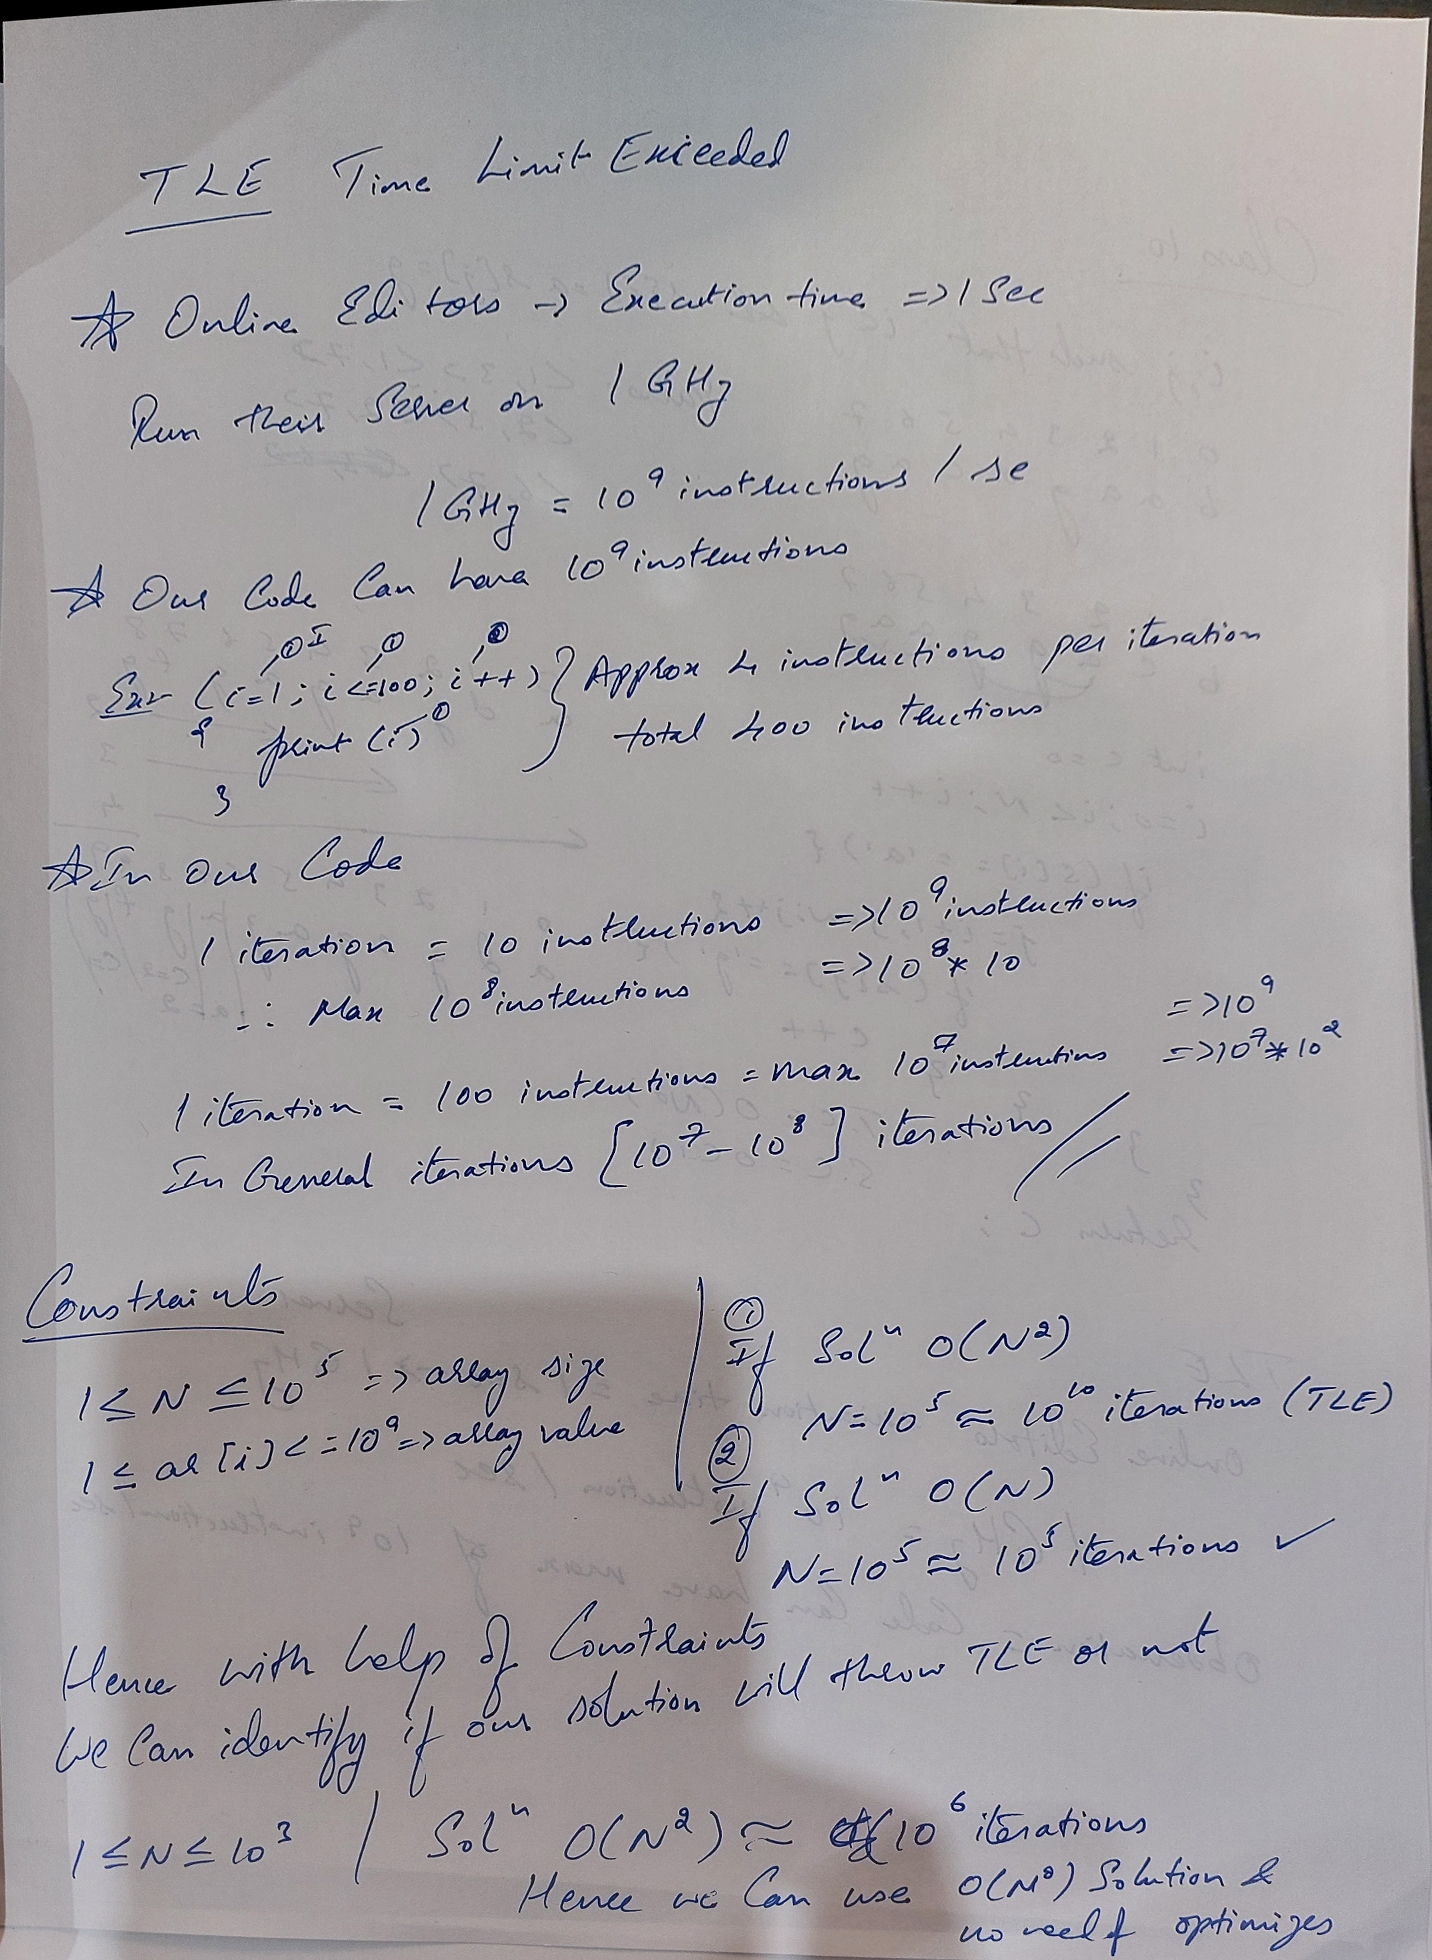 TLE Time Limit Exceeded
☆ Online Editors -> Execution time => 1 Sec
Run their Server on 1 GHz
1 GHz = 10⁹ instructions / se
☆ Our Code Can have 10⁹ instructions
(i=1; i<=100; i++) } Approx 4 instructions per iteration
{ print (i) ① total 400 instructions
}
☆ In our Code
1 iteration = 10 instructions => 10⁹ instructions
∴ Max 10⁸ instructions => 10⁸ * 10
=> 10⁹
1 iteration = 100 instructions = max 10⁷ instructions => 10⁷ * 10²
In General iterations [10⁷ - 10⁸] iterations //
Constraints
1 ≤ N ≤ 10⁵ => array size
1 ≤ ar[i] <= 10⁹ => array value
①
If Solⁿ O(N²)
N = 10⁵ ≈ 10¹⁰ iterations (TLE)
②
If Solⁿ O(N)
N = 10⁵ ≈ 10⁵ iterations ✓
Hence with help of Constraints
We Can identify if our solution will throw TLE or not
1 ≤ N ≤ 10³ / Solⁿ O(N²) ≈ 10⁶ iterations
Hence we Can use O(N²) Solution &
no need of optimizes